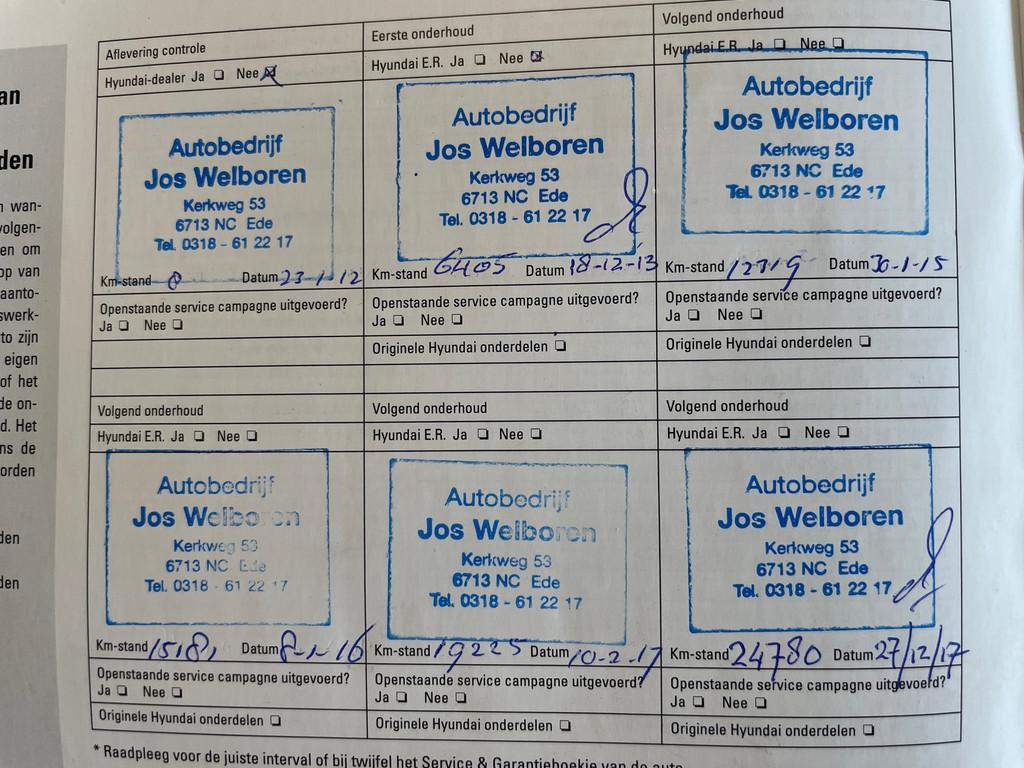 an
den
n wan-
volgen-
en om
op van
aanto-
swerk-
to zijn
eigen
of het
de on-
d. Het
ns de
orden
den
den
Aflevering controle
Hyundai-dealer Ja ☐ Nee ☒
Autobedrijf
Jos Welboren
Kerkweg 53
6713 NC Ede
Tel. 0318 - 61 22 17
Km-stand 8 Datum 23-1-12
Openstaande service campagne uitgevoerd?
Ja ☐ Nee ☐
Eerste onderhoud
Hyundai E.R. Ja ☐ Nee ☒
Autobedrijf
Jos Welboren
Kerkweg 53
6713 NC Ede
Tel. 0318 - 61 22 17
Km-stand 6405 Datum 18-12-13
Openstaande service campagne uitgevoerd?
Ja ☐ Nee ☐
Originele Hyundai onderdelen ☐
Volgend onderhoud
Hyundai E.R. Ja ☐ Nee ☐
Autobedrijf
Jos Welboren
Kerkweg 53
6713 NC Ede
Tel. 0318 - 61 22 17
Km-stand 12319 Datum 30-1-15
Openstaande service campagne uitgevoerd?
Ja ☐ Nee ☐
Originele Hyundai onderdelen ☐
Volgend onderhoud
Hyundai E.R. Ja ☐ Nee ☐
Autobedrijf
Jos Welboren
Kerkweg 53
6713 NC Ede
Tel. 0318 - 61 22 17
Km-stand Datum 8-1-16
Openstaande service campagne uitgevoerd?
Ja ☐ Nee ☐
Originele Hyundai onderdelen ☐
Volgend onderhoud
Hyundai E.R. Ja ☐ Nee ☐
Autobedrijf
Jos Welboren
Kerkweg 53
6713 NC Ede
Tel. 0318 - 61 22 17
Km-stand 19225 Datum 10-2-17
Openstaande service campagne uitgevoerd?
Ja ☐ Nee ☐
Originele Hyundai onderdelen ☐
Volgend onderhoud
Hyundai E.R. Ja ☐ Nee ☐
Autobedrijf
Jos Welboren
Kerkweg 53
6713 NC Ede
Tel. 0318 - 61 22 17
Km-stand 24780 Datum 27/12/17
Openstaande service campagne uitgevoerd?
Ja ☐ Nee ☐
Originele Hyundai onderdelen ☐
* Raadpleeg voor de juiste interval of bij twijfel het Service & Garantieboekje van de auto